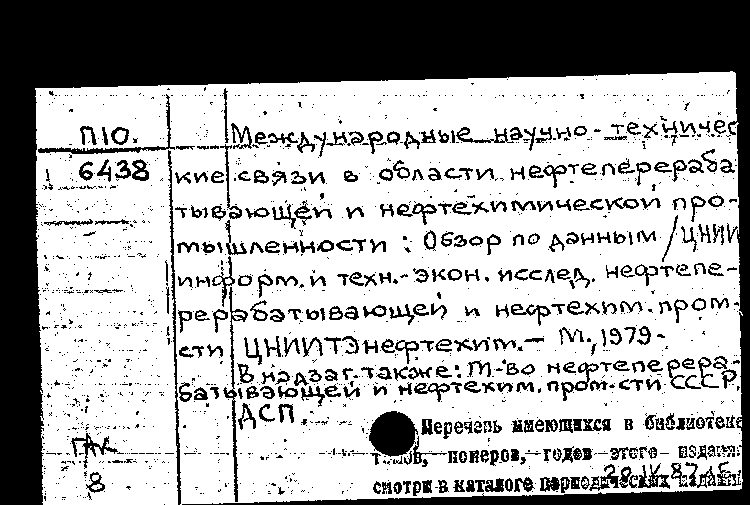 П10. Международные научно-техничес
6438 кие связи в области нефтеперераба
тывающей и нефтехимической про-
мышленности : Обзор по данным / ЦНИИ
информ. и техн.-экон. исслед. нефтепе-
рерабатывающей и нефтехим. пром-
сти ЦНИИТЭнефтехим. — М., 1979-
В надзаг. также: М-во нефтеперера-
батывающей и нефтехим. пром-сти СССР.
ДСП.
Перечень имеющихся в библиотеке
томов, номеров, годов этого издания
смотри в каталоге периодических изданий
20.IV.87
8